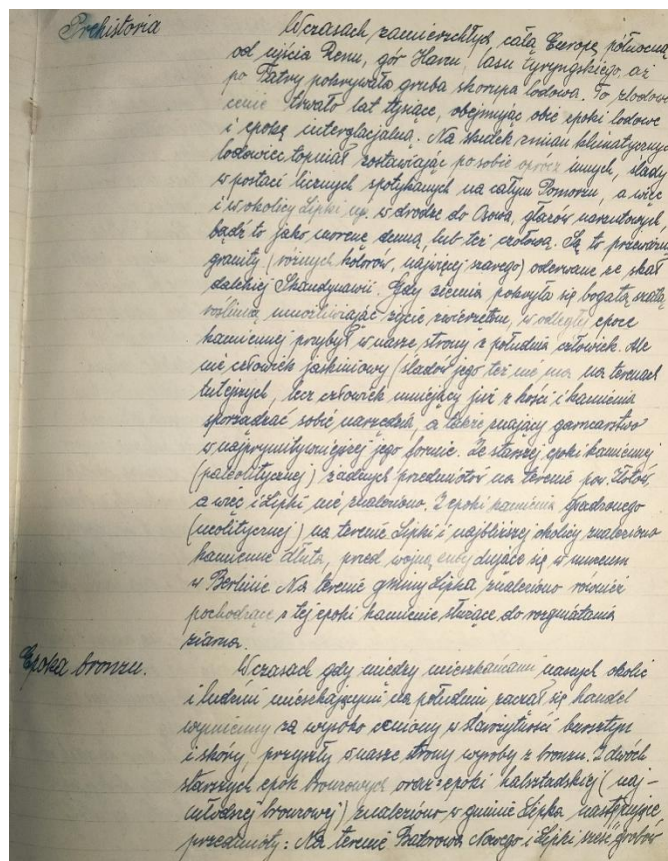 Prehistoria
W czasach zamierzchłych całą Europę północną
od ujścia Renu, gór Harzu, lasu tyryngskiego, aż
po Tatry pokrywała gruba skorupa lodowa. To zlodowa-
cenie trwało lat tysiące, obejmując obie epoki lodowe
i epokę interglacjalną. Na skutek zmian klimatycznych
lodowiec topniał zostawiając po sobie oprócz innych, ślady
w postaci licznych spotykanych na całym Pomorzu, a więc
i w okolicy Lipki np. w drodze do Osowa, głazów narzutowych,
bądź to jako morenę denną, lub też czołową. Są to przeważnie
granity (różnych kolorów, najwięcej szarego) oderwane ze skał
dalekiej Skandynawii. Gdy ziemia pokryła się bogatą szatą
roślinną umożliwiając życie zwierzętom, w odległej epoce
kamiennej przybył w nasze strony z południa człowiek. Ale
nie człowiek jaskiniowy (śladów jego też nie ma na terenach
tutejszych, lecz człowiek umiejący już z kości i kamienia
sporządzać sobie narzędzia, a także znający garncarstwo
w najprymitywniejszej jego formie. Ze starszej epoki kamiennej
(paleolitycznej) żadnych przedmiotów na terenie pow. Złotów,
a więc i Lipki nie znaleziono. Z epoki kamienia gładzonego
(neolitycznej) na terenie Lipki i najbliższej okolicy znaleziono
kamienne dłuta, przed wojną znajdujące się w muzeum
w Berlinie. Na terenie gminy Lipka znaleziono również
pochodzące z tej epoki kamienie służące do rozgniatania
ziarna.
Epoka bronzu.
W czasach gdy między mieszkańcami naszych okolic
i ludźmi mieszkającymi na południu zaczął się handel
wymienny za wysoko ceniony w starożytności bursztyn
i skóry, przyszły w nasze strony wyroby z bronzu. Z dwóch
starszych epok bronzowych oraz epoki halsztadskiej (naj-
młodszej bronzowej) znaleziono w gminie Lipka następujące
przedmioty: Na terenie Batorowa, Nowego i Lipki sześć grobów